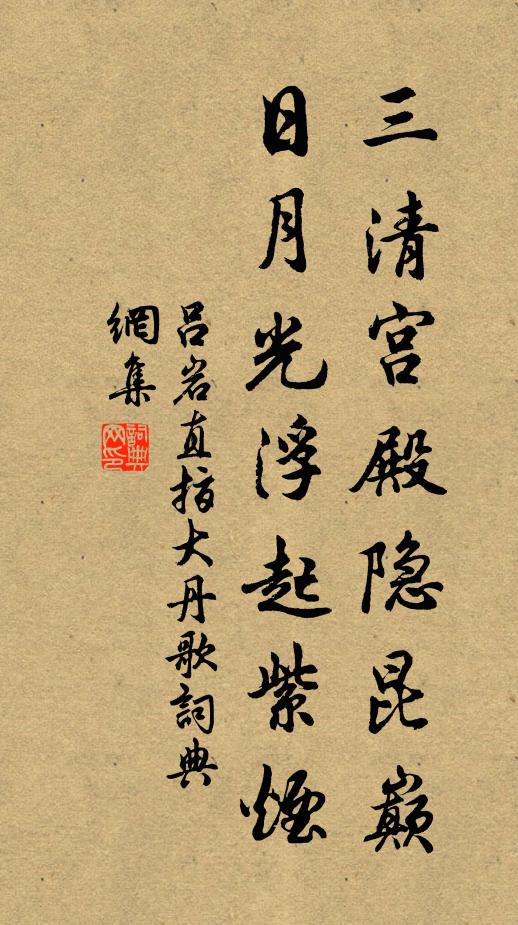 三清宫殿隐昆巅
日月光浮起紫煙
吕岩直指大丹歌詞典
網集
詞典网印